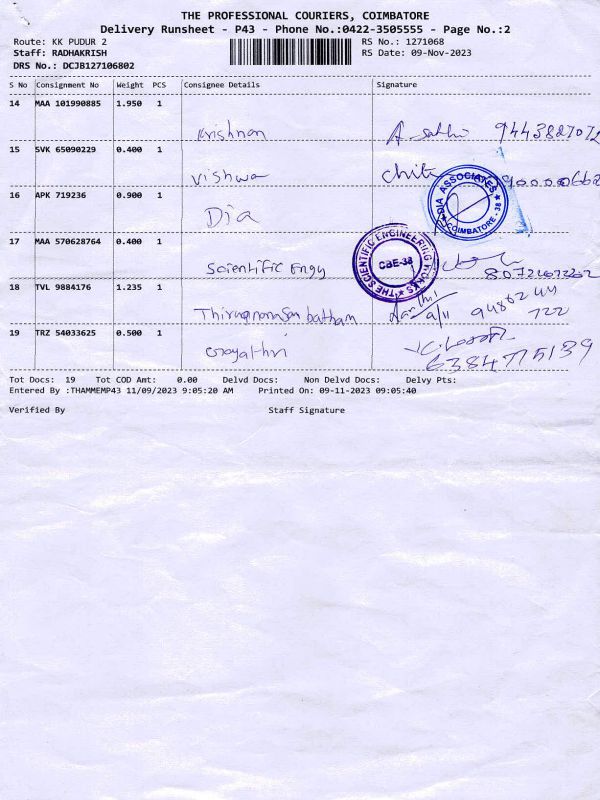 THE PROFESSIONAL COURIERS, COIMBATORE
Delivery Runsheet - P43 - Phone No.:0422-3505555 - Page No.:2
Route: KK PUDUR 2 RS No.: 1271068
Staff: RADHAKRISH RS Date: 09-Nov-2023
DRS No.: DCJB127106802
S No Consignment No Weight PCS Consignee Details Signature
14 MAA 101990885 1.950 1
Krishnan A. Sathi
15 SVK 65090229 0.400 1
Vishwa Chit
16 APK 719236 0.900 1
Dia DIA ASSOCIATES COIMBATORE - 38
17 MAA 570628764 0.400 1
Scientific Engg THE SCIENTIFIC ENGINEERING WORKS CBE-38
18 TVL 9884176 1.235 1
9/11 9486244
722
19 TRZ 54033625 0.500 1
Gayathri 6384775139
Tot Docs: 19 Tot COD Amt: 0.00 Delvd Docs: Non Delvd Docs: Delvy Pts:
Entered By :THAMMEMP43 11/09/2023 9:05:20 AM Printed On: 09-11-2023 09:05:40
Verified By Staff Signature